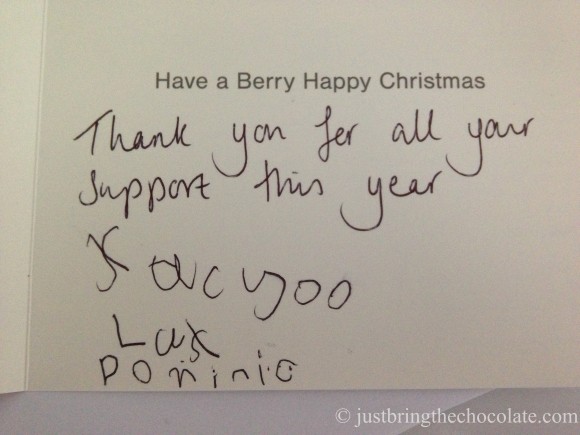 Have a Berry Happy Christmas
Thank you for all your
support this year
yoo
Dominic
© justbringthechocolate.com